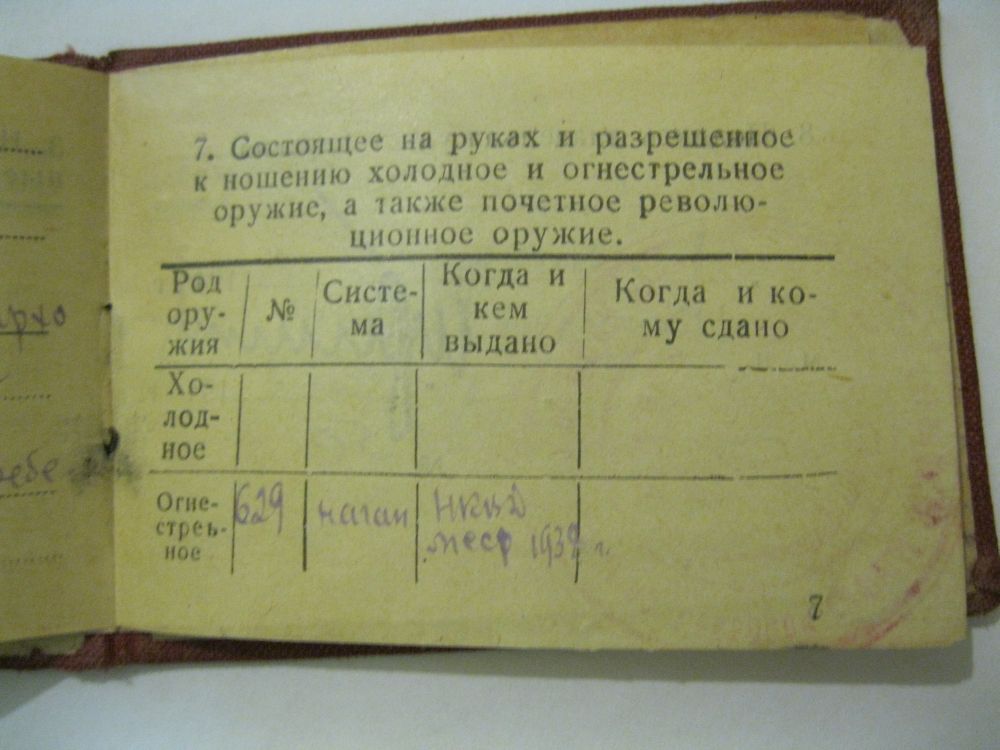 7. Состоящее на руках и разрешенное
к ношению холодное и огнестрельное
оружие, а также почетное револю-
ционное оружие.
Род ору- жия № Систе- ма Когда и кем выдано Когда и ко- му сдано
Хо- лод- ное
Огне- стрель- ное 629 наган НКВД
7